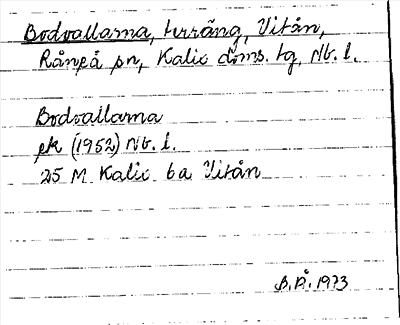 Bodvallarna, terräng, Vitån,
Råneå sn, Kalix doms. tg, Nb. l.
Bodvallarna
ek (1952) Nb. l.
25 M Kalix 6a Vitån
B.Å. 1973